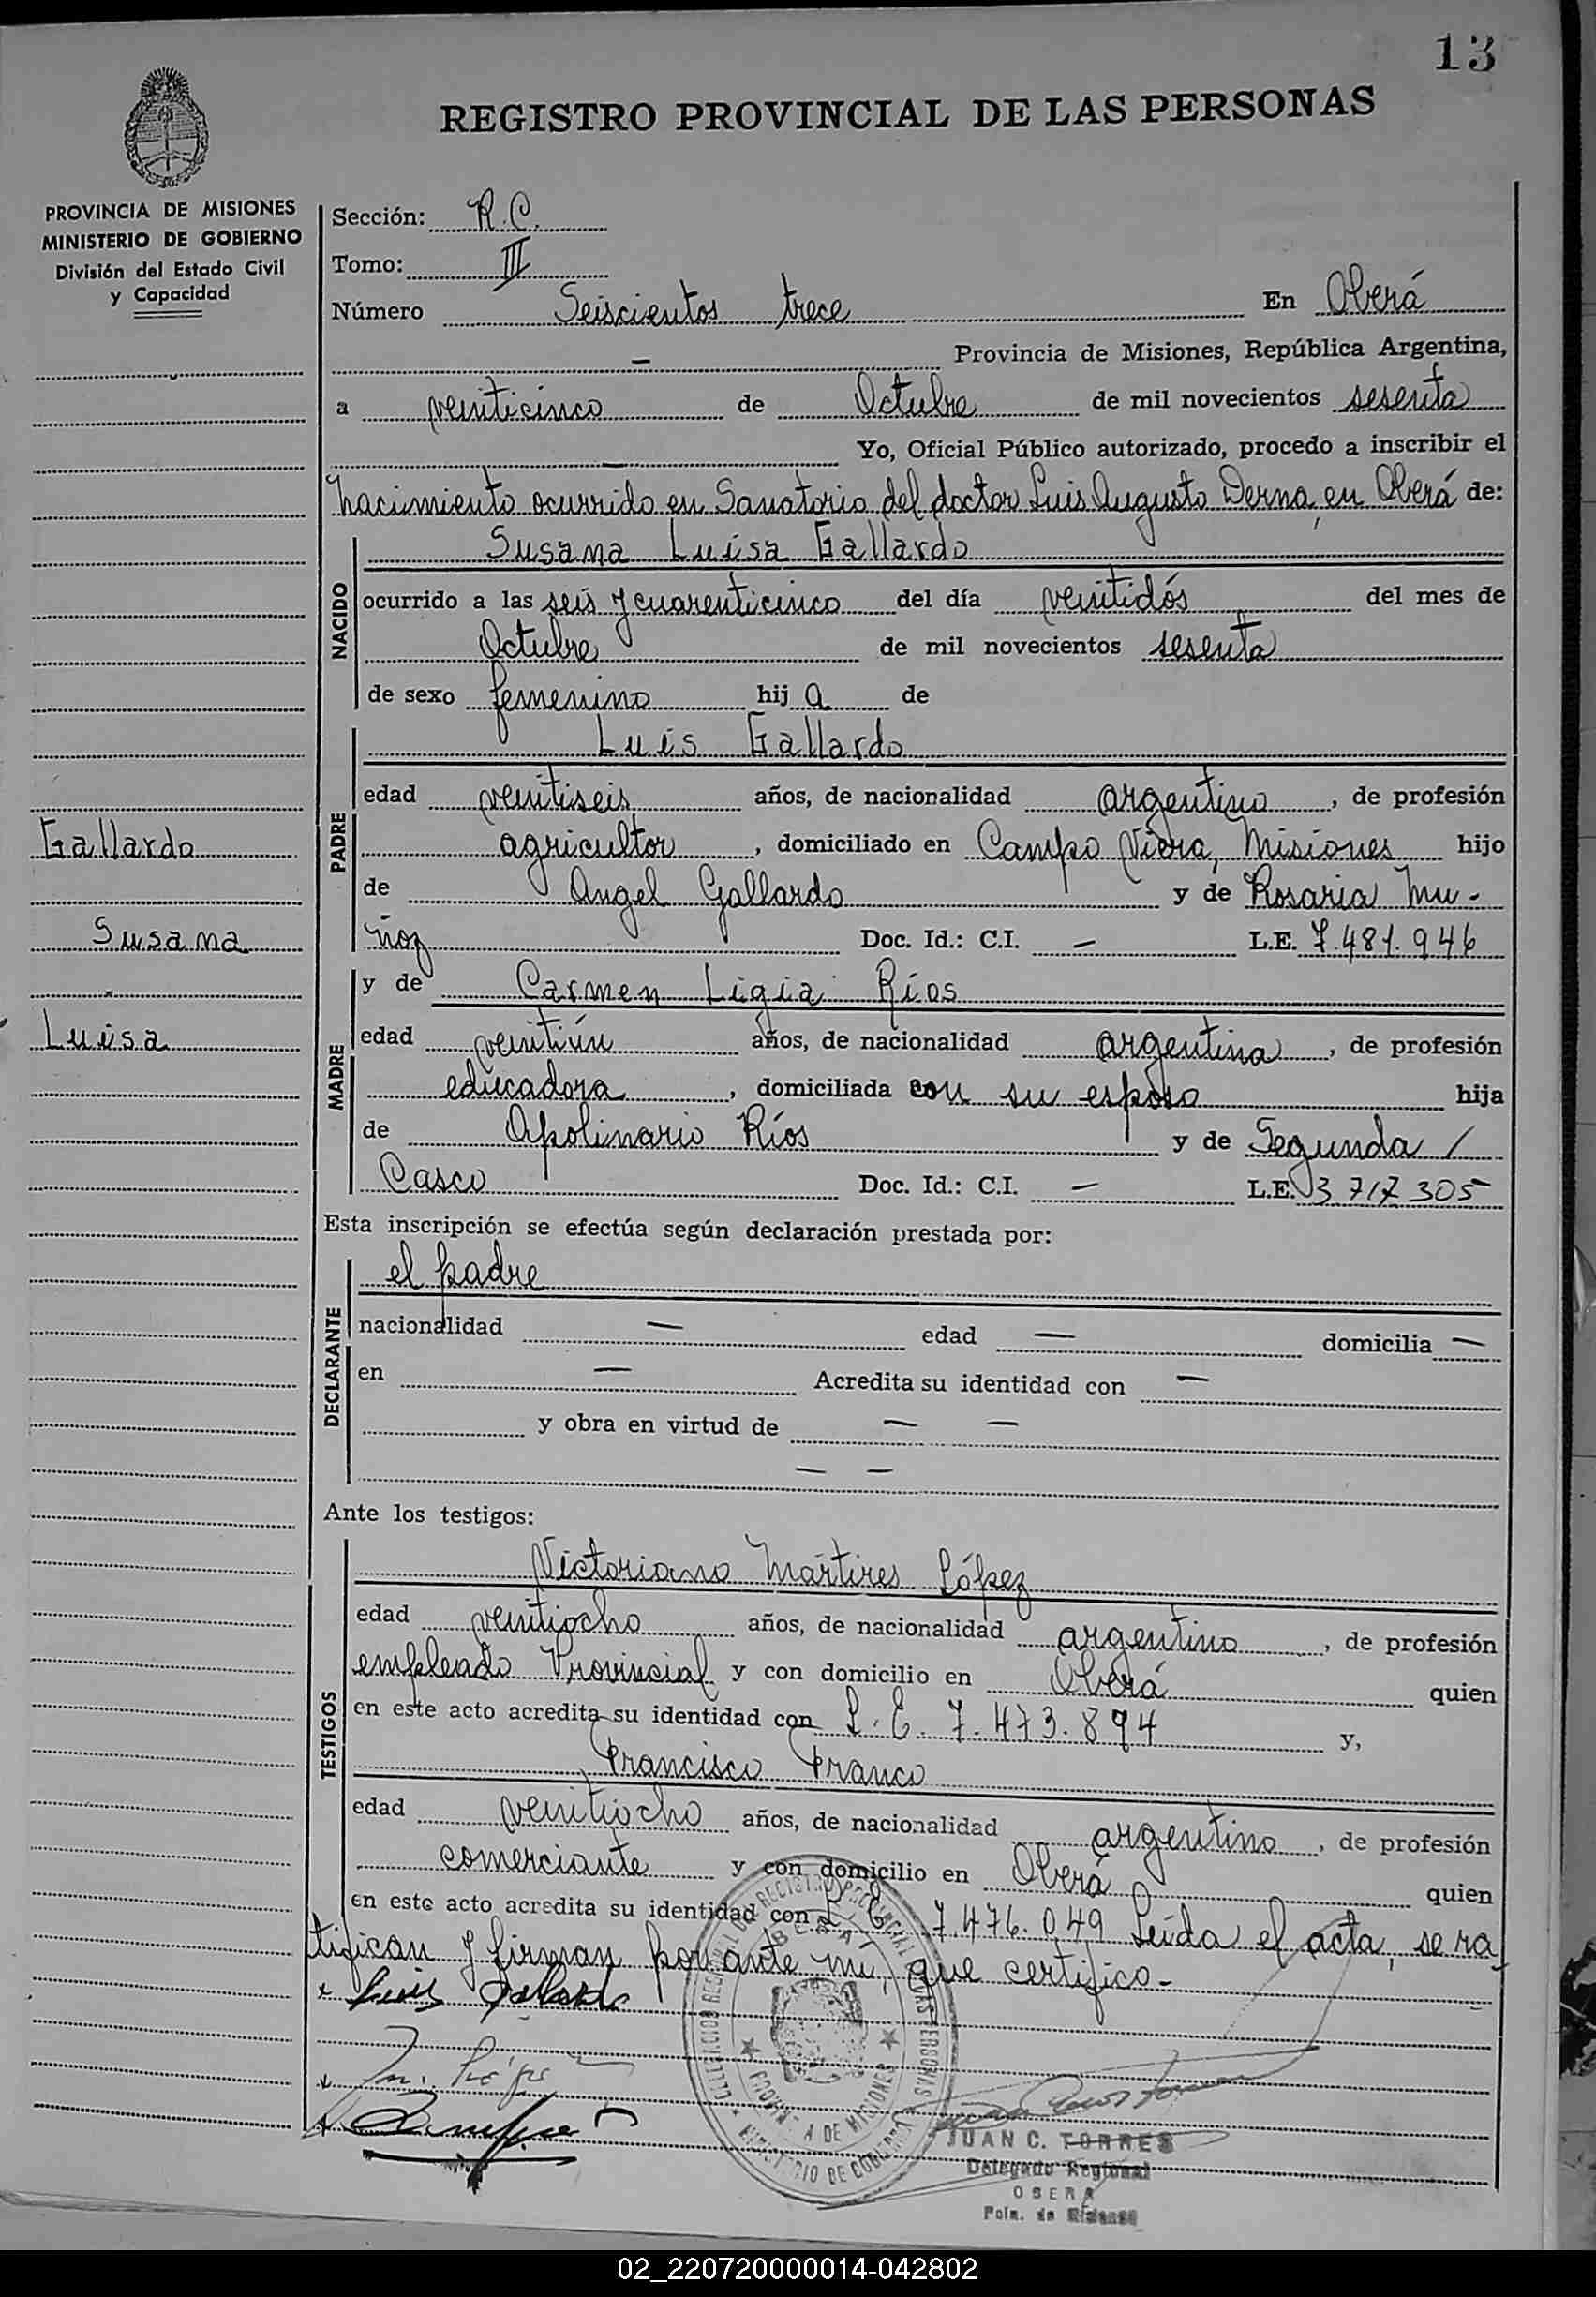 13
REGISTRO PROVINCIAL DE LAS PERSONAS
PROVINCIA DE MISIONES
MINISTERIO DE GOBIERNO
División del Estado Civil
y Capacidad
Sección: R.C.
Tomo: III
Número Seiscientos trece En Oberá
— Provincia de Misiones, República Argentina,
a veinticinco de Octubre de mil novecientos sesenta
— Yo, Oficial Público autorizado, procedo a inscribir el
nacimiento ocurrido en Sanatorio del doctor Luis Augusto Derna, en Oberá de:
NACIDO
Susana Luisa Gallardo
ocurrido a las seis y cuarenticinco del día veintidós del mes de
Octubre de mil novecientos sesenta
de sexo femenino hij a de
PADRE
Luis Gallardo
edad veintiseis años, de nacionalidad argentino, de profesión
agricultor, domiciliado en Campo Viera, Misiones hijo
de Angel Gallardo y de Rosaria Mu-
ñoz Doc. Id.: C.I. — L.E. 7.481.946
Gallardo
Susana
Luisa
MADRE
y de Carmen Ligia Ríos
edad veintiún años, de nacionalidad argentina, de profesión
educadora, domiciliada con su esposo hija
de Apolinario Ríos y de Segunda /
Casco Doc. Id.: C.I. — L.E. 3 717 305
Esta inscripción se efectúa según declaración prestada por:
DECLARANTE
el padre
nacionalidad — edad — domicilia —
en — Acredita su identidad con —
y obra en virtud de — —
— —
Ante los testigos:
TESTIGOS
Victoriano Mártires López
edad veintiocho años, de nacionalidad argentino, de profesión
empleado Provincial y con domicilio en Oberá quien
en este acto acredita su identidad con L.E. 7.473.894 y,
Francisco Franco
edad veintiocho años, de nacionalidad argentino, de profesión
comerciante y con domicilio en Oberá quien
en este acto acredita su identidad con L.E. 7.476.049 Leída el acta, se ra-
tifican y firman por ante mi, que certifico.-
Luis Gallardo
JUAN C. TORRES
Delegado Regional
OBERA
PROVINCIA DE MISIONES
MINISTERIO DE GOBIERNO
02_220720000014-042802